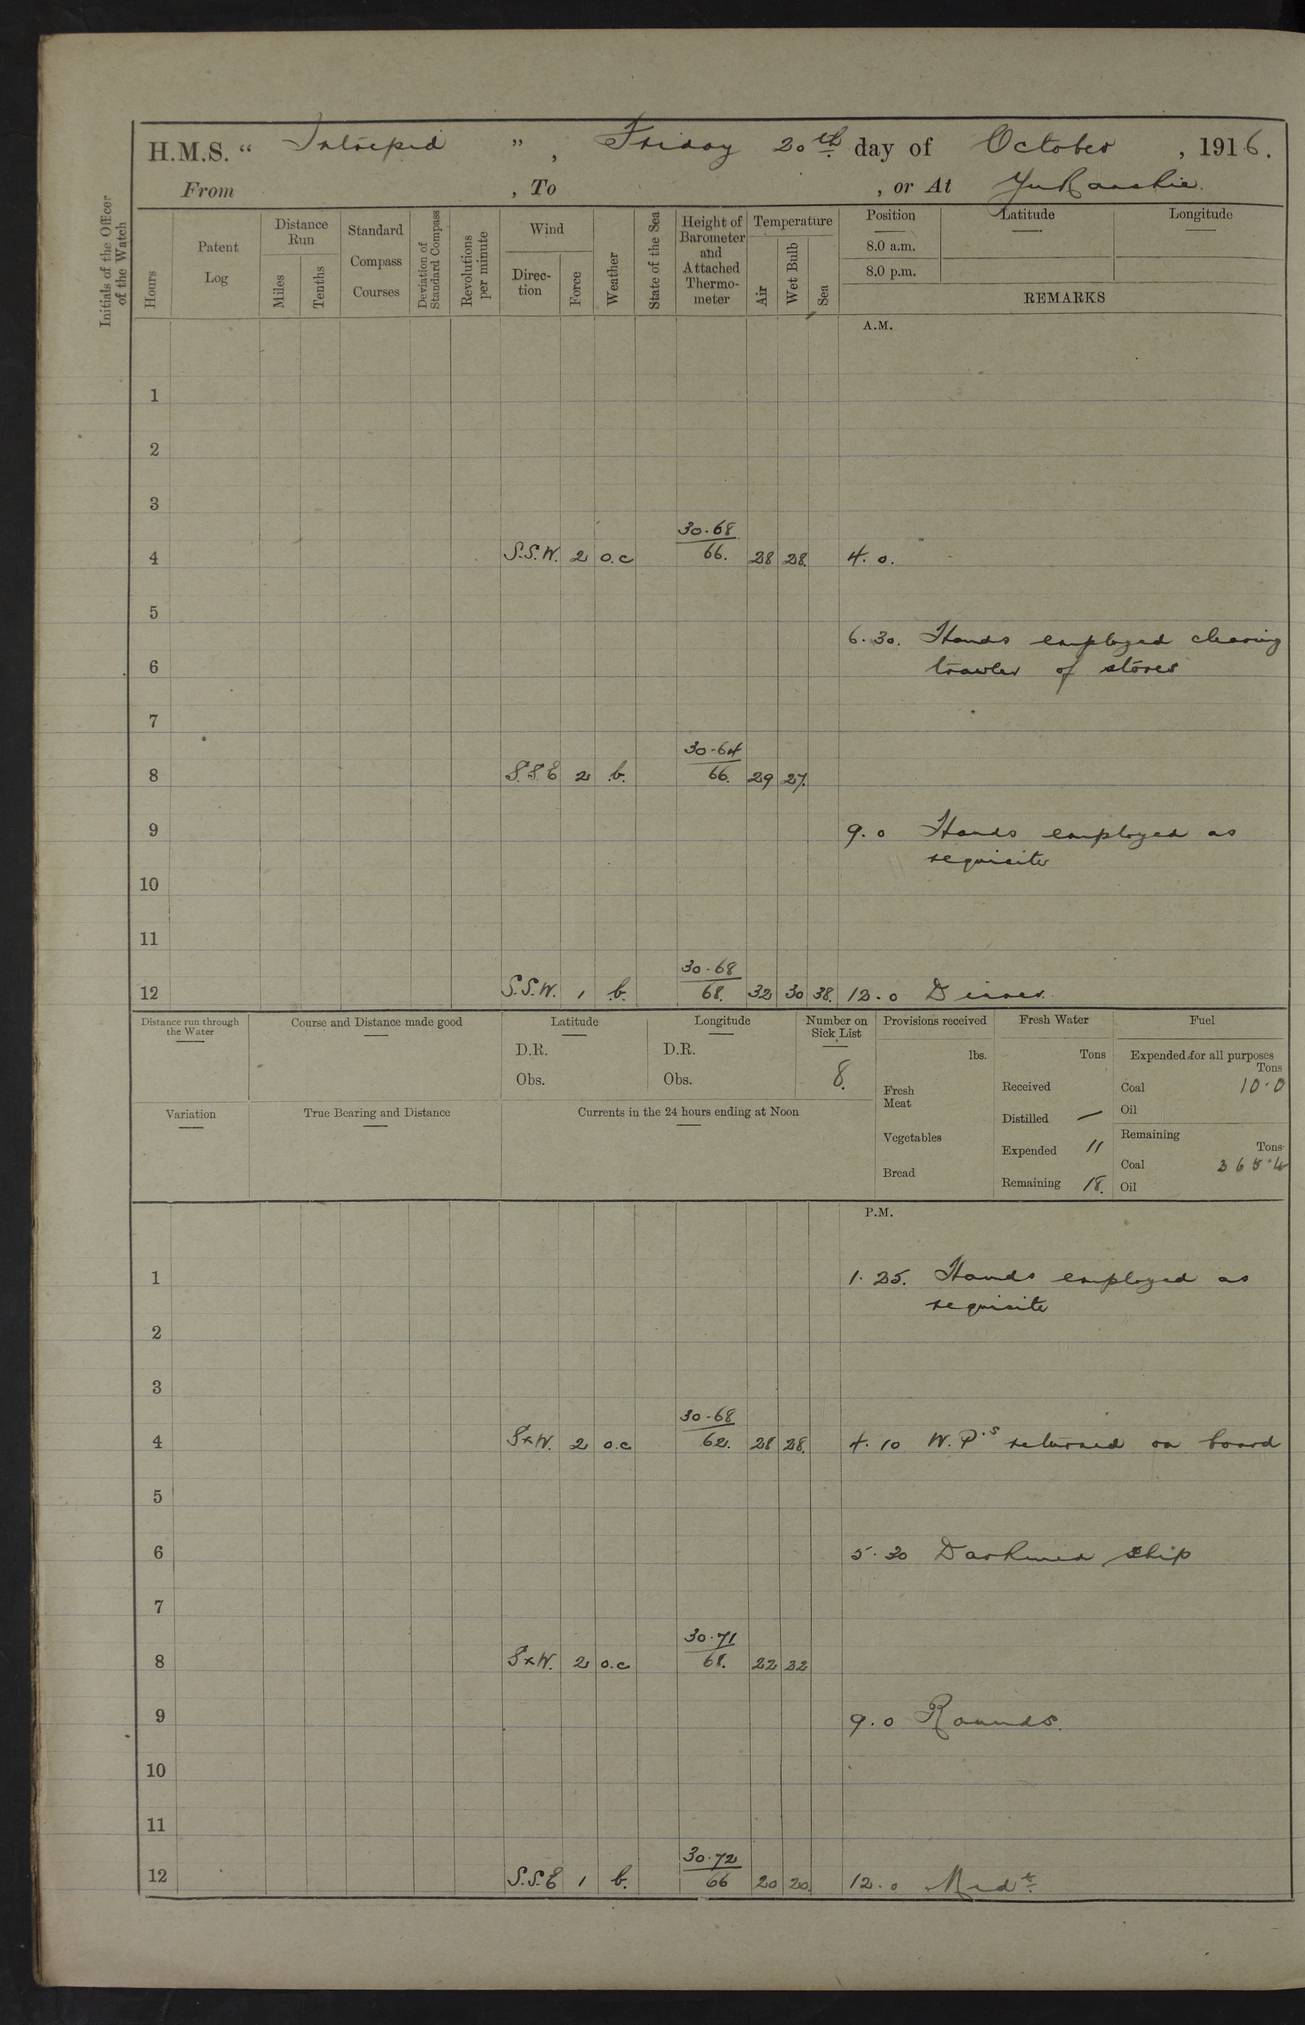 H.M.S. “ Intrepid ”, Friday 20th day of October, 1916.
From , To , or At Yukanskie.
Initials of the Officer of the Watch
Hours
Patent Log
Distance Run
Miles
Tenths
Standard Compass Courses
Deviation of Standard Compass
Revolutions per minute
Wind
Direc-tion
Force
Weather
State of the Sea
Height of Barometer and Attached Thermo-meter
Temperature
Air
Wet Bulb
Sea
Position
Latitude
Longitude
8.0 a.m.
8.0 p.m.
REMARKS
A.M.
1
2
3
30.68
4 S.S.W. 2 o.c 66. 28 28. 4. 0.
5
6. 30. Hands employed clearing
6 trawler of stores
7
30.64
8 S.S.E 2 b. 66. 29 27.
9 9. 0 Hands employed as
requisite
10
11
30.68
12 S.S.W. 1 b. 68. 32 30 38. 12. 0 Dinner.
Distance run through the Water
Course and Distance made good
Latitude
D.R.
Obs.
Longitude
D.R.
Obs.
Number on Sick List
8.
Provisions received
lbs.
Fresh Meat
Vegetables
Bread
Fresh Water
Tons
Received
Distilled —
Expended 11
Remaining 18.
Fuel
Expended for all purposes
Tons
Coal 10.0
Oil
Remaining
Tons
Coal
Oil
Variation
True Bearing and Distance
Currents in the 24 hours ending at Noon
P.M.
1 1. 25. Hands employed as
requisite
2
3
30.68
4 SxW. 2 o.c 62. 28 28. 4. 10 W.P.s returned on board
5
6 5. 30 Darkened ship
7
30.71
8 SxW. 2 o.c 68. 22 22
9 9. 0 Rounds.
10
11
30.72
12 S.S.E 1 b. 66 20 20. 12. 0 Midt.